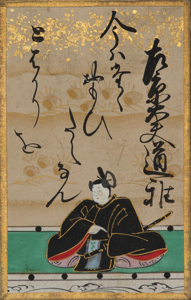 左京大夫道雅
今はたゝ
おもひ
たえなん
とはかりを